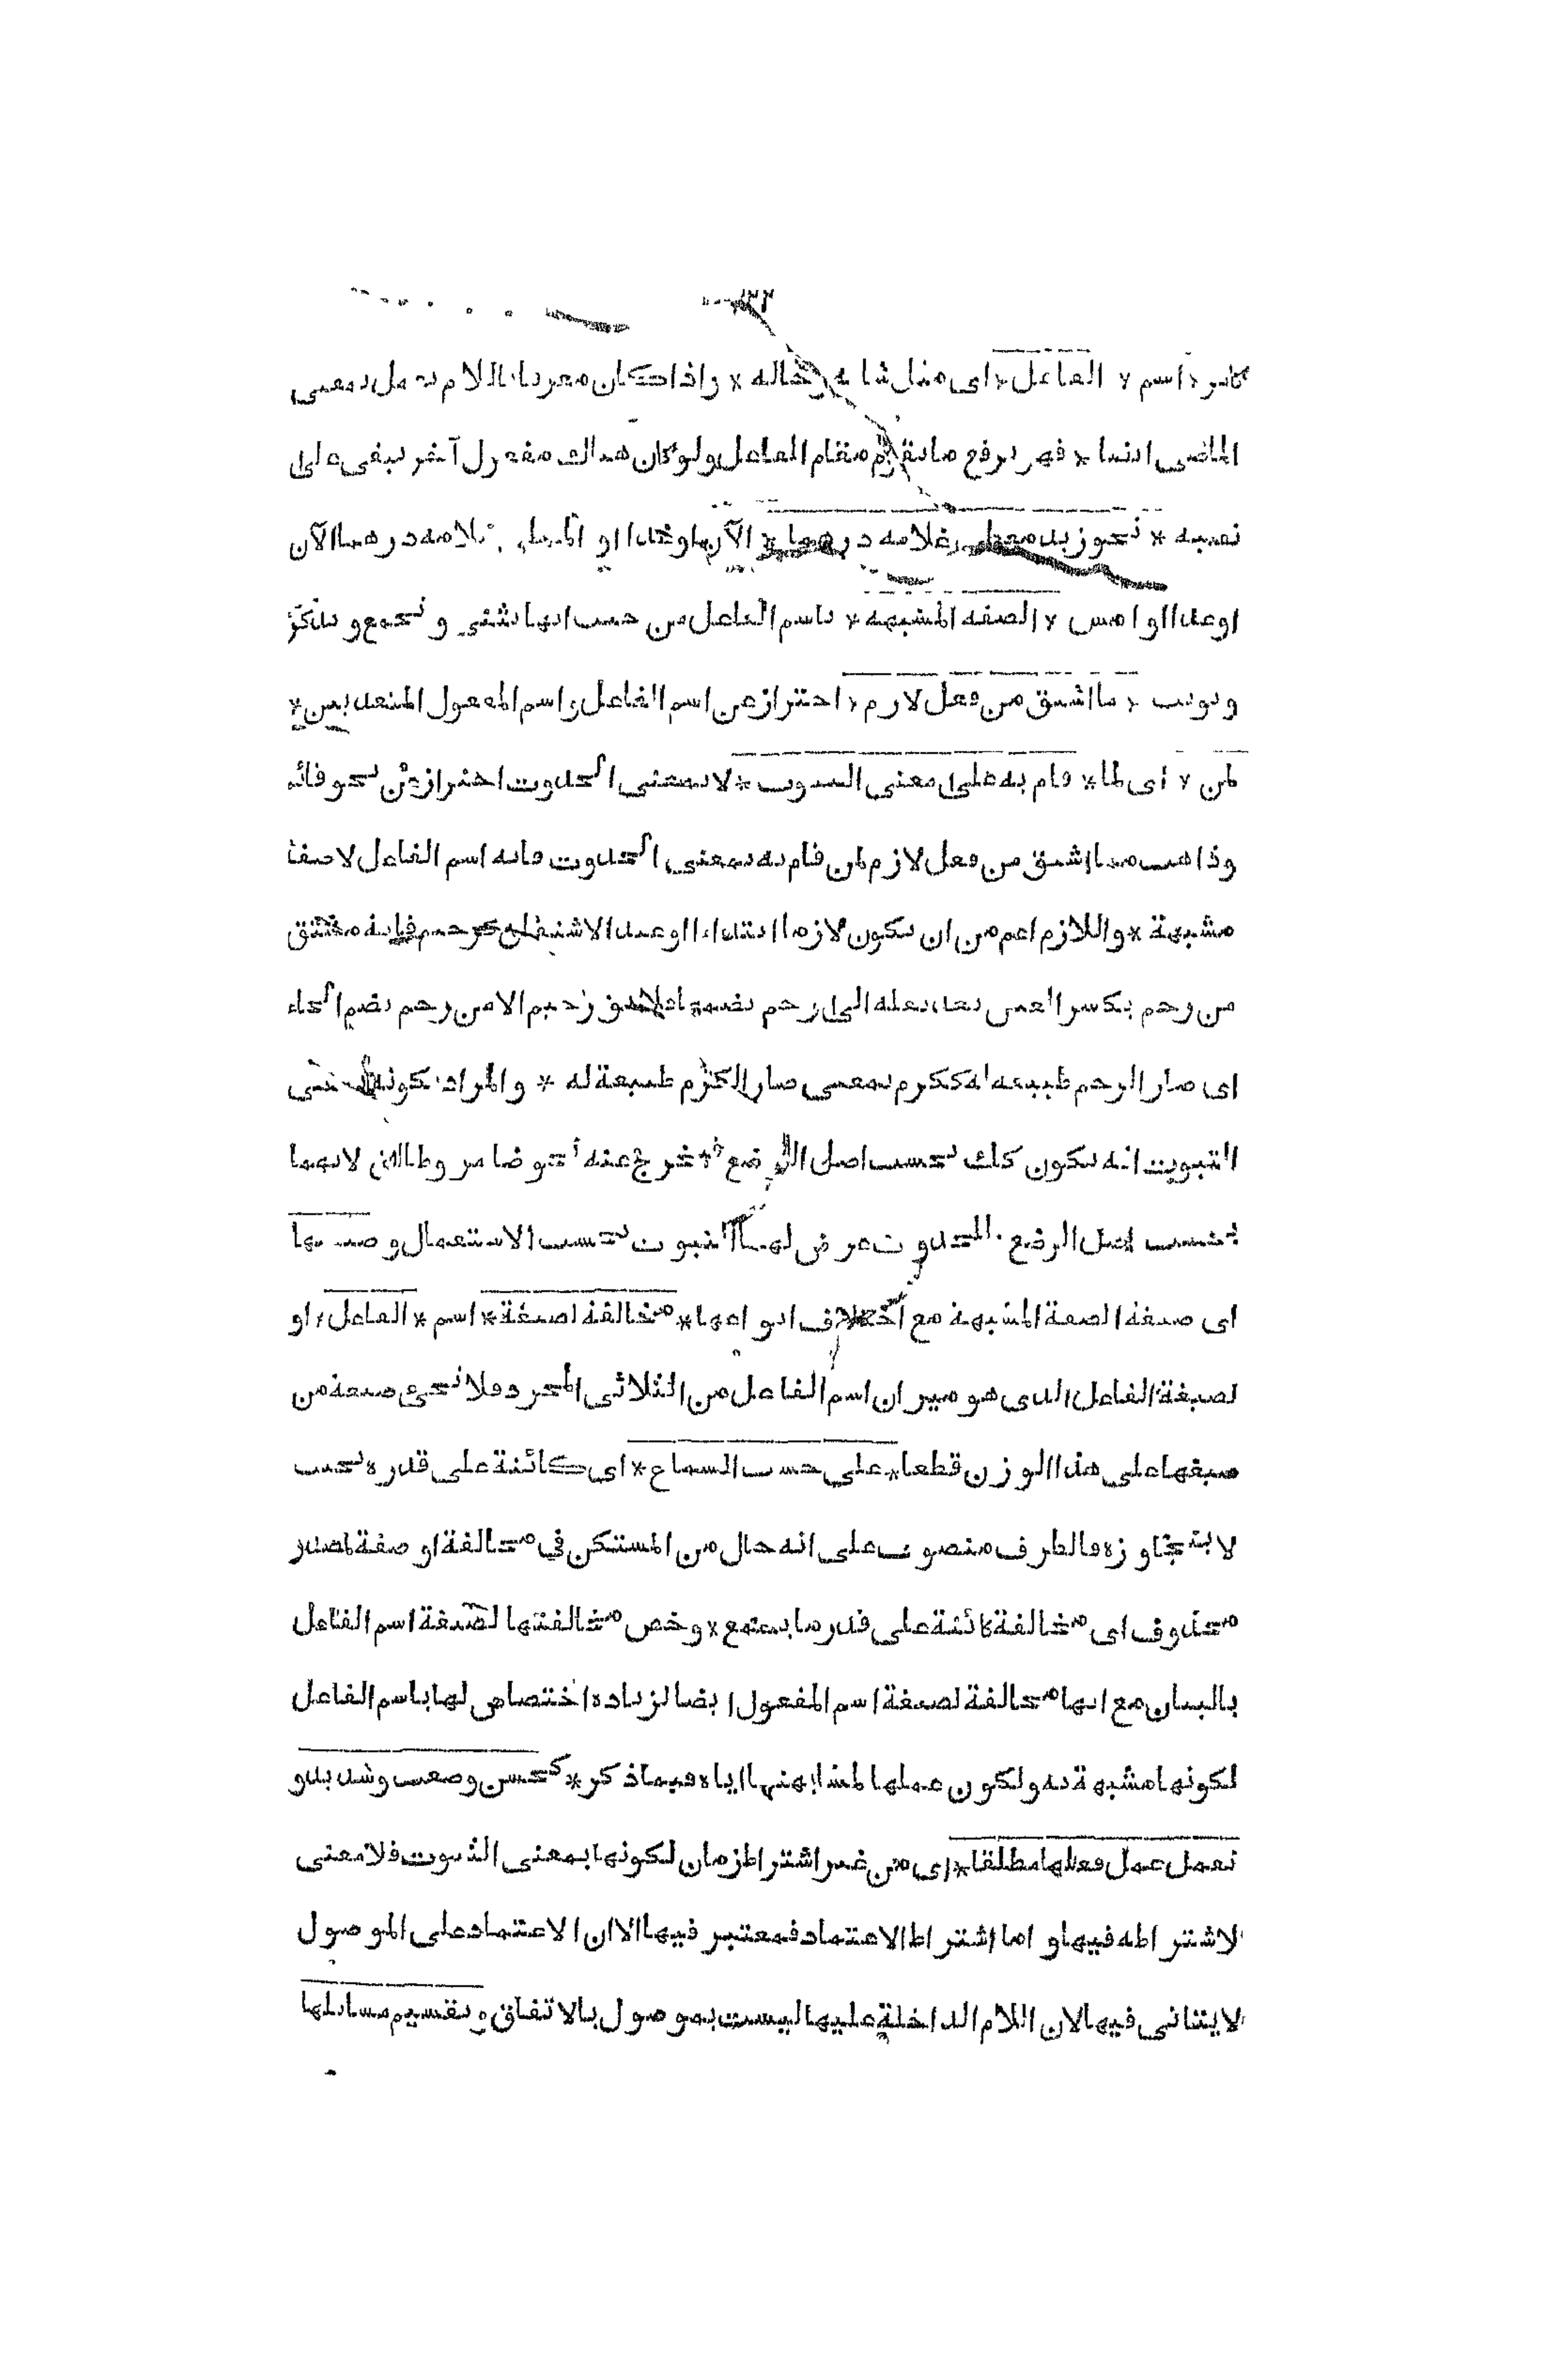 كامر * اسم * الفاعل * اى مثل شانه وحاله * واذا كان معرفا باللام يعمل بمعنى
الماضى ايضا * فهو يرفع ما يقوم مقام الفاعل ولو كان هناك مفعول آخر يبقى على
نصبه * نحو زيد معطى غلامه درهما * الآن او غدا او المعطى غلامه درهما الآن
او غدا او امس * الصفه المشبهه * باسم الفاعل من حيث انها تثنى و تجمع و تذكر
و تونث * ما اشتق من فعل لازم * احتراز عن اسم الفاعل و اسم المفعول المتعديين *
لمن * اى لما * قام به على معنى الثبوت * لا بمعنى الحدوث احتراز عن نحو قائم
وذاهب مما اشتق من فعل لازم لمن قام به بمعنى الحدوث فانه اسم الفاعل لا صفة
مشبهة * واللازم اعم من ان يكون لازما ابتداء او عند الاشتقاق كرحيم فانه مشتق
من رحم بكسر العين بعد نقله الى رحم بضمها فلا يقال رحيم الا من رحم بضم الحاء
اى صار الرحم طبيعه له ككرم بمعنى صار الكرم طبيعة له * والمراد بكونه بمعنى
الثبوت انه يكون كذلك بحسب اصل الوضع فخرج عنه نحو ضامر وطالق لانهما
بحسب اصل الوضع للحدوث عرض لهما الثبوت بحسب الاستعمال وصيغتها
اى صيغة الصفة المشبهة مع اختلاف انواعها * مخالفة لصيغة * اسم * الفاعل * او
لصيغة الفاعل الذى هو ميزان اسم الفاعل من الثلاثى المجرد فلا تجئ صيغة من
صيغها على هذا الوزن قطعا * على حسب السماع * اى كائنة على قدره بحيث
لا يتجاوزه فالظرف منصوب على انه حال من المستكن في مخالفة او صفة لمصدر
محذوف اى مخالفة كائنة على قدر ما يسمع * وخص مخالفتها لصيغة اسم الفاعل
بالبيان مع انها مخالفة لصيغة اسم المفعول ايضا لزياده اختصاص لها باسم الفاعل
لكونها مشبهة به ولكون عملها لمشابهتها اياه فيما ذكر * كحسن وصعب وشديد و
تعمل عمل فعلها مطلقا * اى من غير اشتراط زمان لكونها بمعنى الثبوت فلا معنى
لاشتراطه فيها و اما اشتراط الاعتماد فمعتبر فيها الا ان الاعتماد على الموصول
لا يتاتى فيها لان اللام الداخلة عليها ليست بموصول بالاتفاق و تقسيم مسائلها